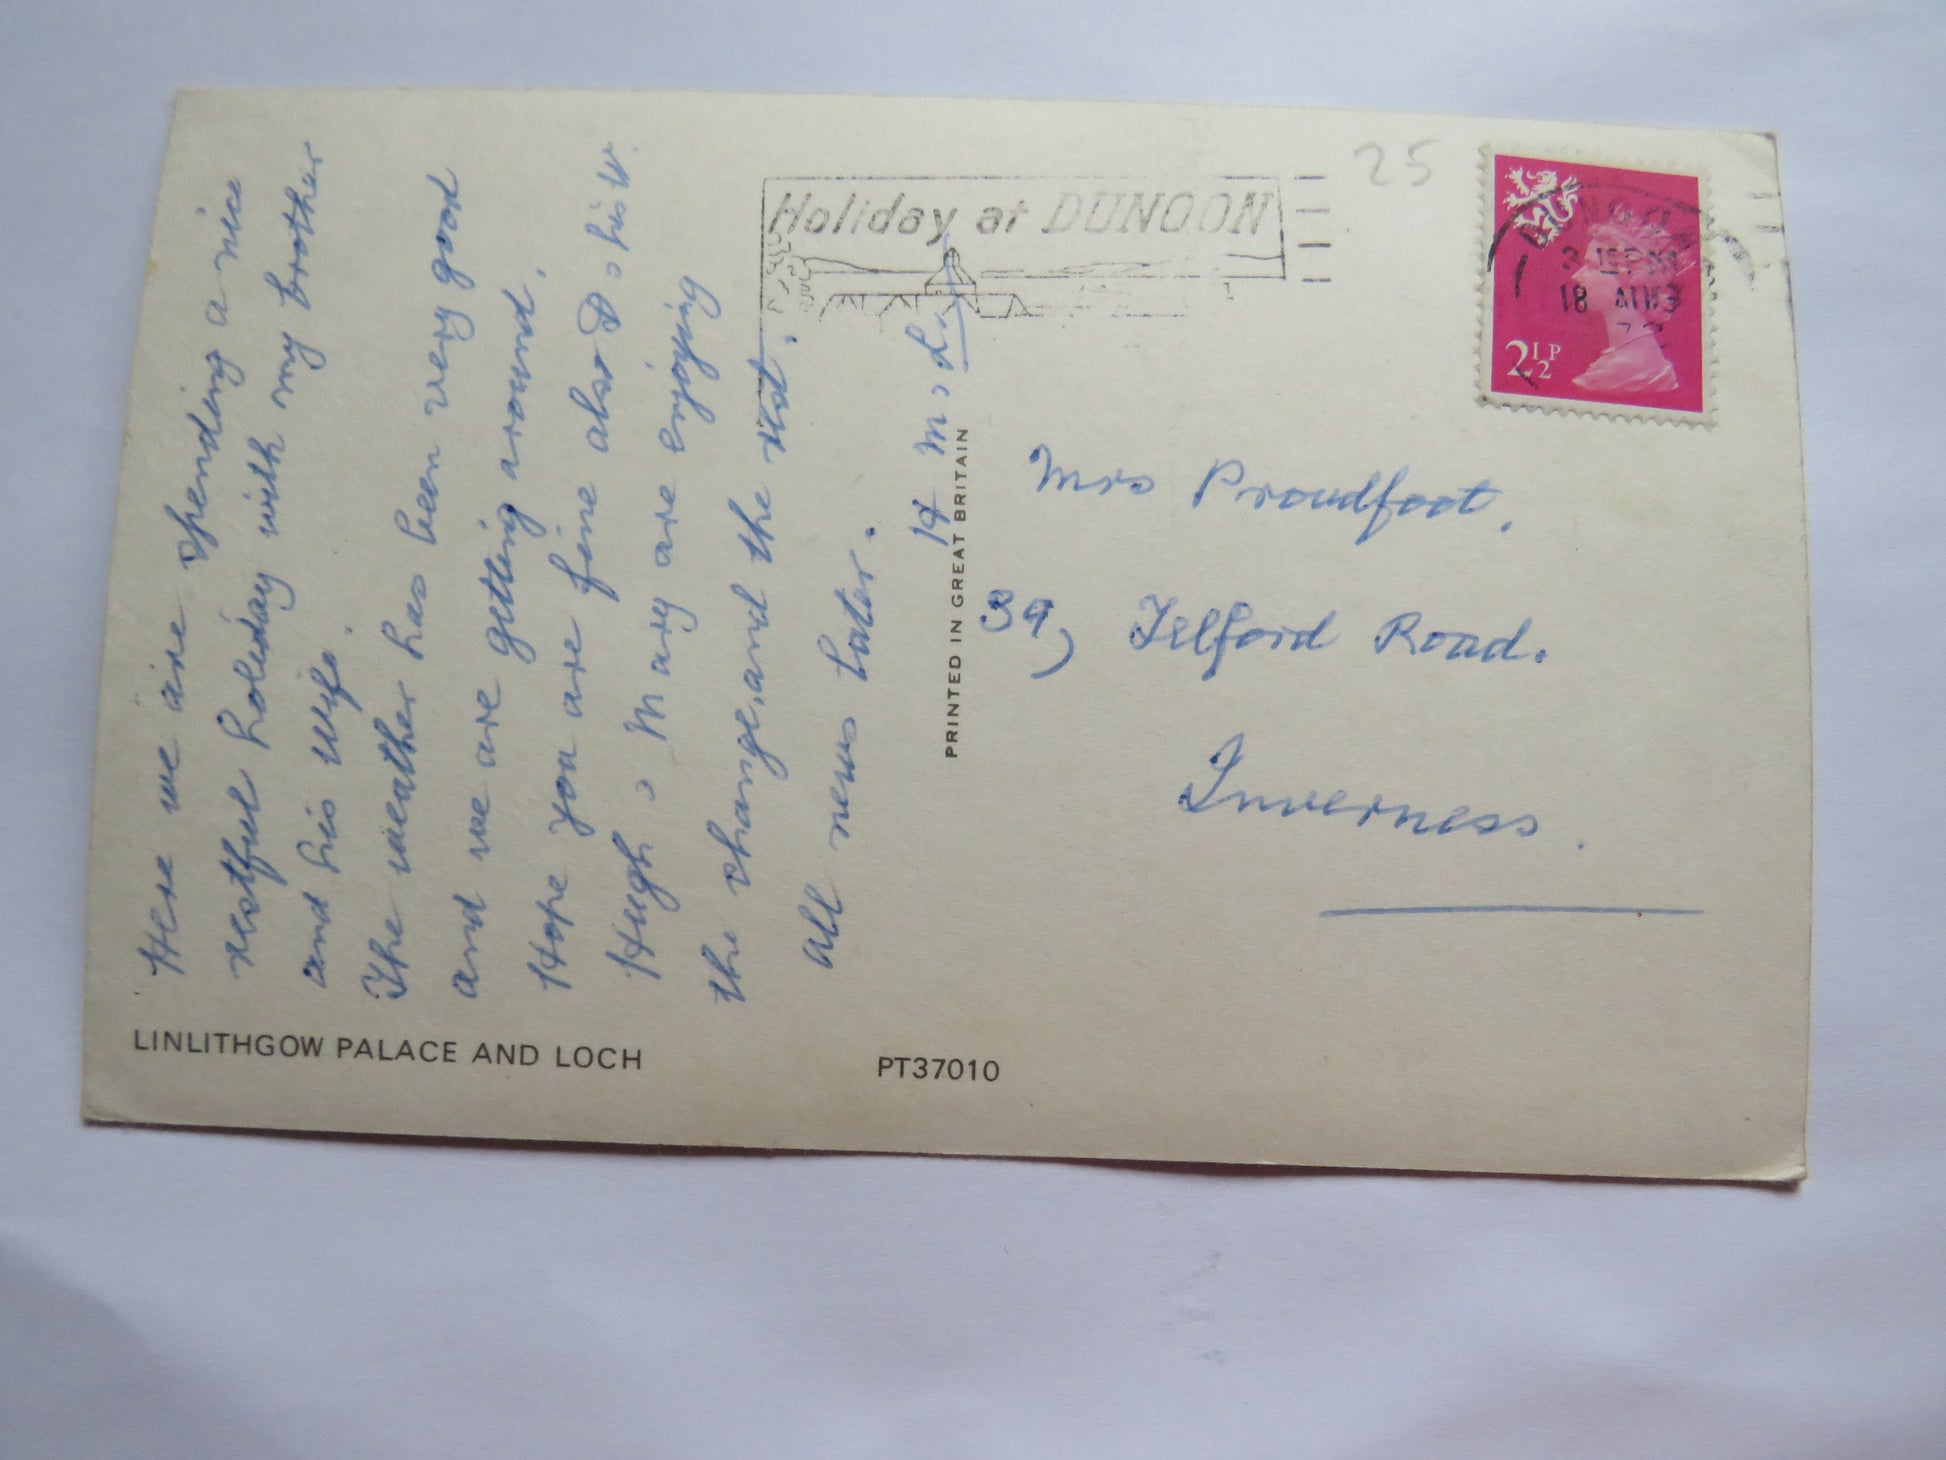 Here we are spending a nice
restful holiday with my brother
and his wife.
The weather has been very good
and we are getting around.
Hope you are fine also D & his W.
Hugh & Mary are enjoying
the change, and the rest.
All news later.
H M &
LINLITHGOW PALACE AND LOCH
PT37010
PRINTED IN GREAT BRITAIN
Holiday at DUNOON
25
2½P
18 AUG
Mrs Proudfoot,
39, Telford Road.
Inverness.